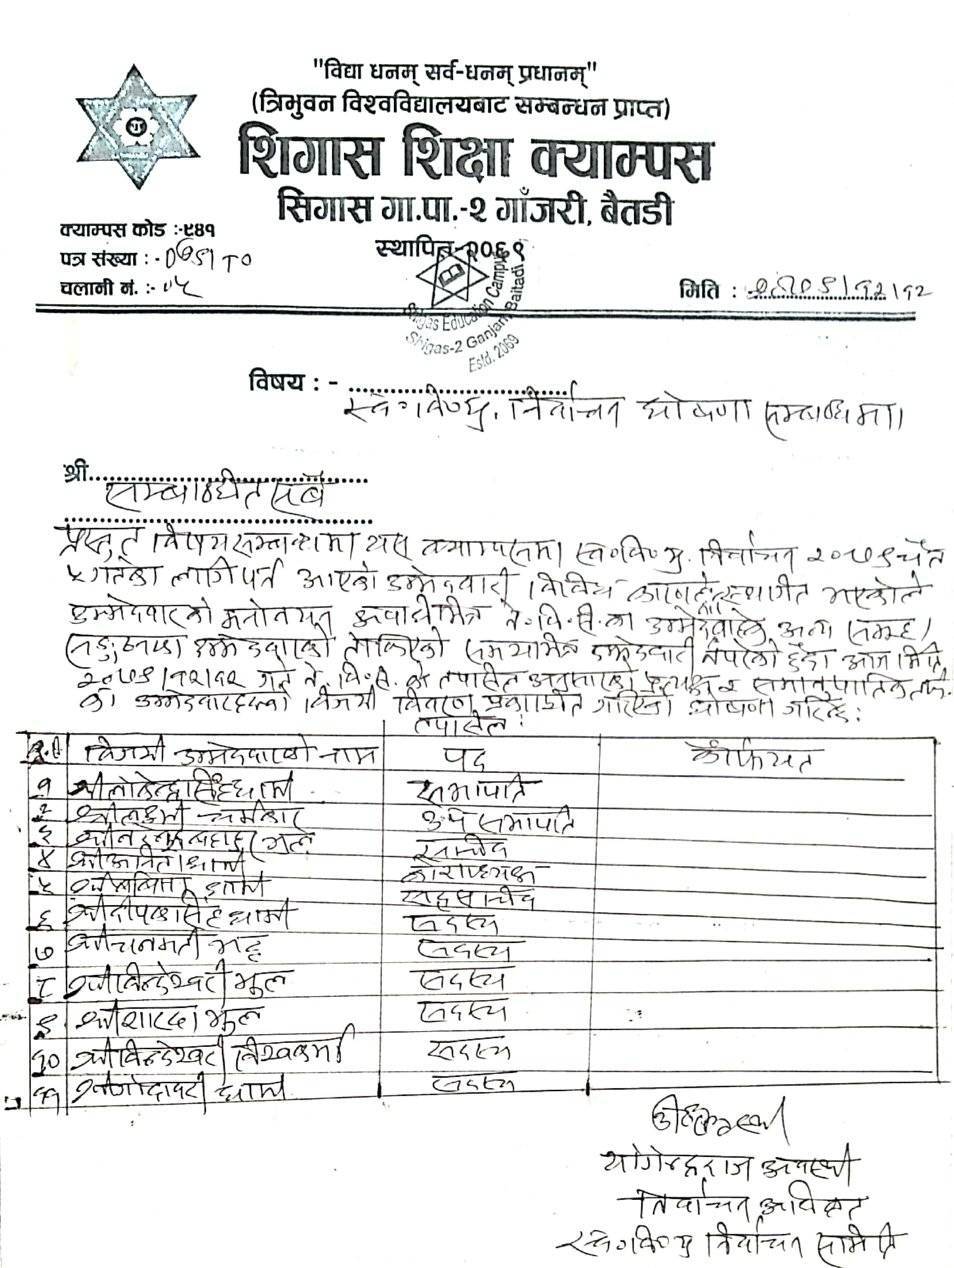 "विद्या धनम् सर्व-धनम् प्रधानम्"
(त्रिभुवन विश्वविद्यालयबाट सम्बन्धन प्राप्त)
शिगास शिक्षा क्याम्पस
सिगास गा.पा.-२ गाँजरी, बैतडी
क्याम्पस कोड :-९४१
स्थापित-२०६९
पत्र संख्या :- ०७९/८०
चलानी नं. :- ०५
मिति : २०७९/१२/१२
Shigas Education Campus
Shigas-2 Ganjari, Baitadi
Estd. 2069
विषय : - स्व०वि०यु. निर्वाचन घोषणा सम्बन्धमा।
श्री सम्बन्धीत सबै
प्रस्तुत विषय सम्बन्धमा यस क्याम्पसमा स्व०वि०यु. निर्वाचन २०७९ चैत्र
५ गतेका लागी पर्न आएको उम्मेदवारी विविध कारणले स्थगीत भएकोले
उम्मेदवारको मनोनयन अवधीभित्र ने.वि.सं.का उम्मेदवारहरू अन्य समूह।
उम्मेदवारको तोकिएको समयभित्र उम्मेदवारी नपरेको हुँदा आज मिति
२०७९/१२/१२ गते ने.वि.सं. का तपासिल अनुसारको प्रत्यक्ष र समानुपातिक तर्फ
का उम्मेदवारहरूको विजयी विवरण प्रकाशित गरिएको घोषणा गरिन्छ:
तपासिल:
विजयी उम्मेदवारको नाम पद कैफियत
१ श्री लोकेन्द्र सिंह धामी सभापति
२ श्री लक्ष्मी चर्मकार उप सभापति
३ श्री बहादुर भुल सचिव
४ श्री धामी कोषाध्यक्ष
५ श्री धामी सह सचिव
६ श्री दीपक सिंह धामी सदस्य
७ श्री चनमती भट्ट सदस्य
८ श्री विन्देश्वरी भुल सदस्य
९ श्री शारदा भुल सदस्य
१० श्री विन्देश्वरी विश्वकर्मा सदस्य
११ श्री गोदावरी धामी सदस्य
योगेन्द्रराज अवस्थी
निर्वाचन अधिकृत
स्व०वि०यु निर्वाचन समिति